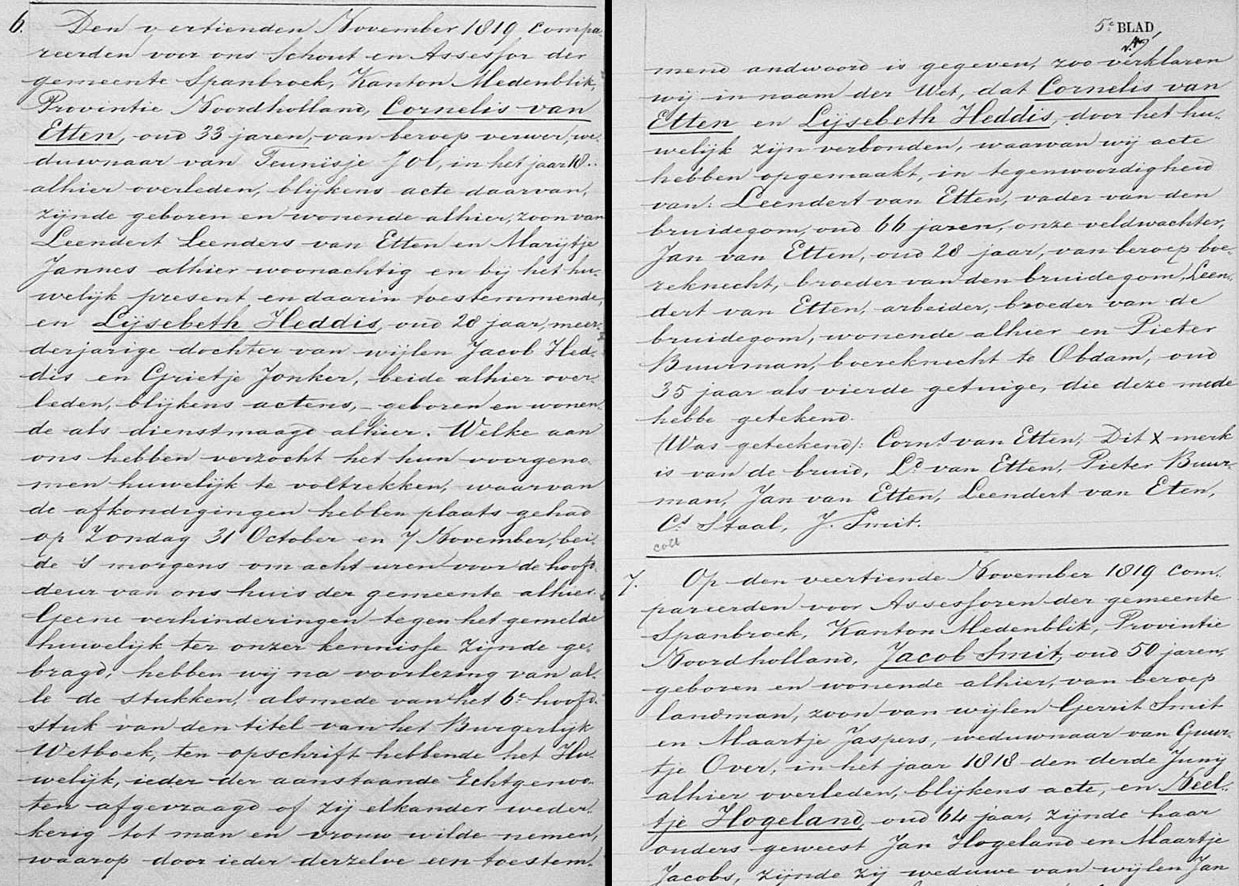 6. Den veertienden November 1819 compa-
reerden voor ons Schout en Assessor der
gemeente Spanbroek, Kanton Medenblik,
Provintie Noordholland, Cornelis van
Etten, oud 33 jaren, van beroep verwer, we-
duwnaar van Teunisje Jol, in het jaar 18..
alhier overleden, blijkens acte daarvan,
zijnde geboren en wonende alhier, zoon van
Leendert Leenders van Etten en Marijtje
Jannes alhier woonachtig en bij het hu-
welijk present en daarin toestemmende,
en Lijsebeth Heddis, oud 28 jaar, meer-
derjarige dochter van wijlen Jacob Hed-
dis en Grietje Jonker, beide alhier over-
leden, blijkens actens, - geboren en wonen-
de als dienstmaagd alhier. Welke aan
ons hebben verzocht het hun voorgeno-
men huwelijk te voltrekken, waarvan
de afkondigingen hebben plaats gehad
op Zondag 31 October en 7 November, bei-
de 's morgens om acht uren voor de hoofd-
deur van ons huis der gemeente alhier.
Geene verhinderingen tegen het gemelde
huwelijk ter onzer kennisse zijnde ge-
bragd, hebben wij na voorlezing van al-
le de stukken, alsmede van het 6e hoofd-
stuk van den titel van het Burgerlijk
Wetboek, ten opschrift hebbende het Hu-
welijk, ieder der aanstaande Echtgenoo-
ten afgevraagd of zij elkander weder-
kerig tot man en vrouw wilde nemen,
waarop door ieder derzelve een toestem-
5e BLAD
mend andwoord is gegeven, zoo verklaren
wij in naam der Wet, dat Cornelis van
Etten en Lijsebeth Heddis, door het hu-
welijk zijn verbonden, waarvan wij acte
hebben opgemaakt, in tegenwoordigheid
van: Leendert van Etten, vader van den
bruidegom, oud 66 jaren, onze veldwachter,
Jan van Etten, oud 28 jaar, van beroep boe-
reknecht, broeder van den bruidegom, Leen-
dert van Etten, arbeider, broeder van de
bruidegom, wonende alhier en Pieter
Buurman, boereknecht te Obdam, oud
35 jaar als vierde getuige, die deze mede
hebbe getekend.
(Was geteekend): Corns van Etten, Dit X merk
is van de bruid, Ld van Etten, Pieter Buur-
man, Jan van Etten, Leendert van Eten,
Cs Staal, J. Smit.
coll
7. Op den veertiende November 1819 com-
pareerden voor Assessoren der gemeente
Spanbroek, Kanton Medenblik, Provintie
Noordholland, Jacob Smit, oud 50 jaren,
geboren en wonende alhier, van beroep
landman, zoon van wijlen Gerrit Smit
en Maartje Jaspers, weduwnaar van Guur-
tje Over, in het jaar 1818 den derde Junij
alhier overleden, blijkens acte, en Neel-
tje Hogeland, oud 64 jaar, zijnde haar
ouders geweest Jan Hogeland en Maartje
Jacobs, zijnde zij weduwe van wijlen Jan